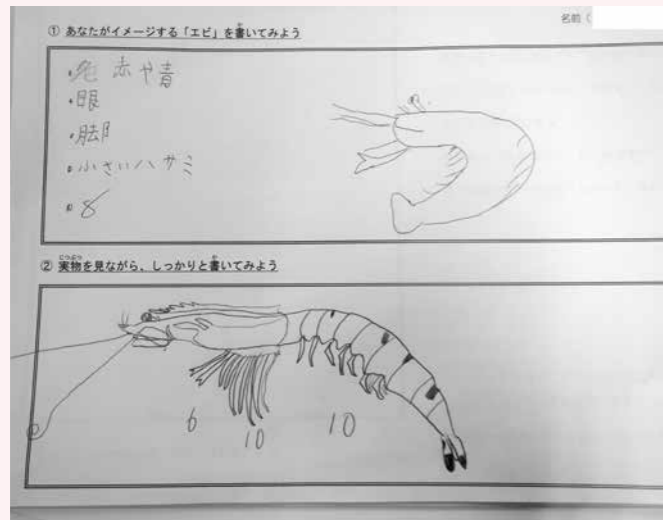 名前(
① あなたがイメージする「エビ」を書いてみよう
・色 赤や青
・眼
・脚
・小さいハサミ
・8
② 実物を見ながら、しっかりと書いてみよう
6
10
10